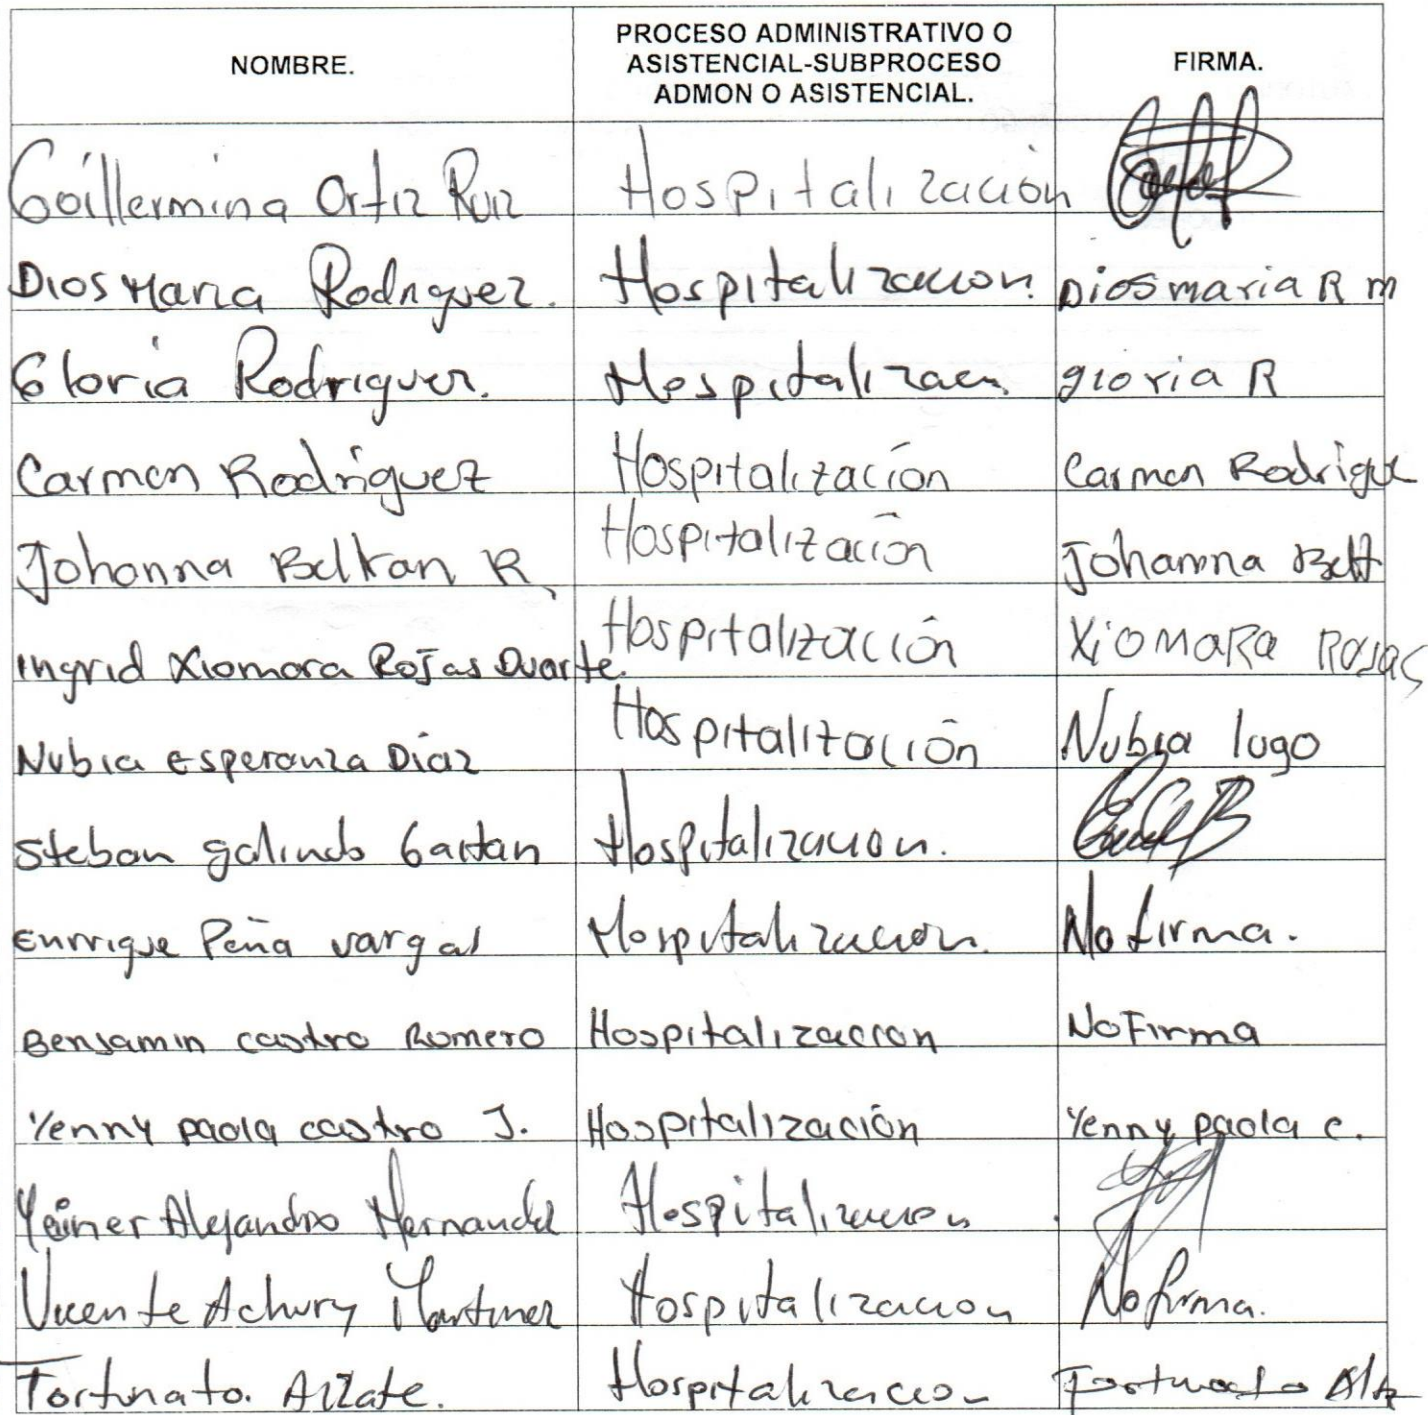 NOMBRE.
PROCESO ADMINISTRATIVO O
ASISTENCIAL-SUBPROCESO
ADMON O ASISTENCIAL.
FIRMA.
Goillermina Ortiz Ruiz Hospitalización
Dios Maria Rodriguez. Hospitalizacion. Diosmaria R m
Gloria Rodriguez. Hospitalizacn. gloria R
Carmen Rodriguez Hospitalización Carmen Rodrigue
Johanna Beltran R. Hospitalización Johanna Belt
Ingrid Xiomara Rojas Duarte. Hospitalización XiOMaRa ROJAS
Nubia Esperanza Díaz Hospitalización Nubia lugo
Steban galindo Gaitan Hospitalizacion.
Enrrique Peña vargas Hospitalizacion. No firma.
Benjamin castro Romero Hospitalizacion No Firma
Yenny paola castro J. Hospitalización Yenny paola c.
Yeiner Alejandro Hernandez Hospitalizacion
Vicente Achury Martinez Hospitalizacion No firma.
Fortunato. Alzate. Hospitalizacion Fortunato Alz